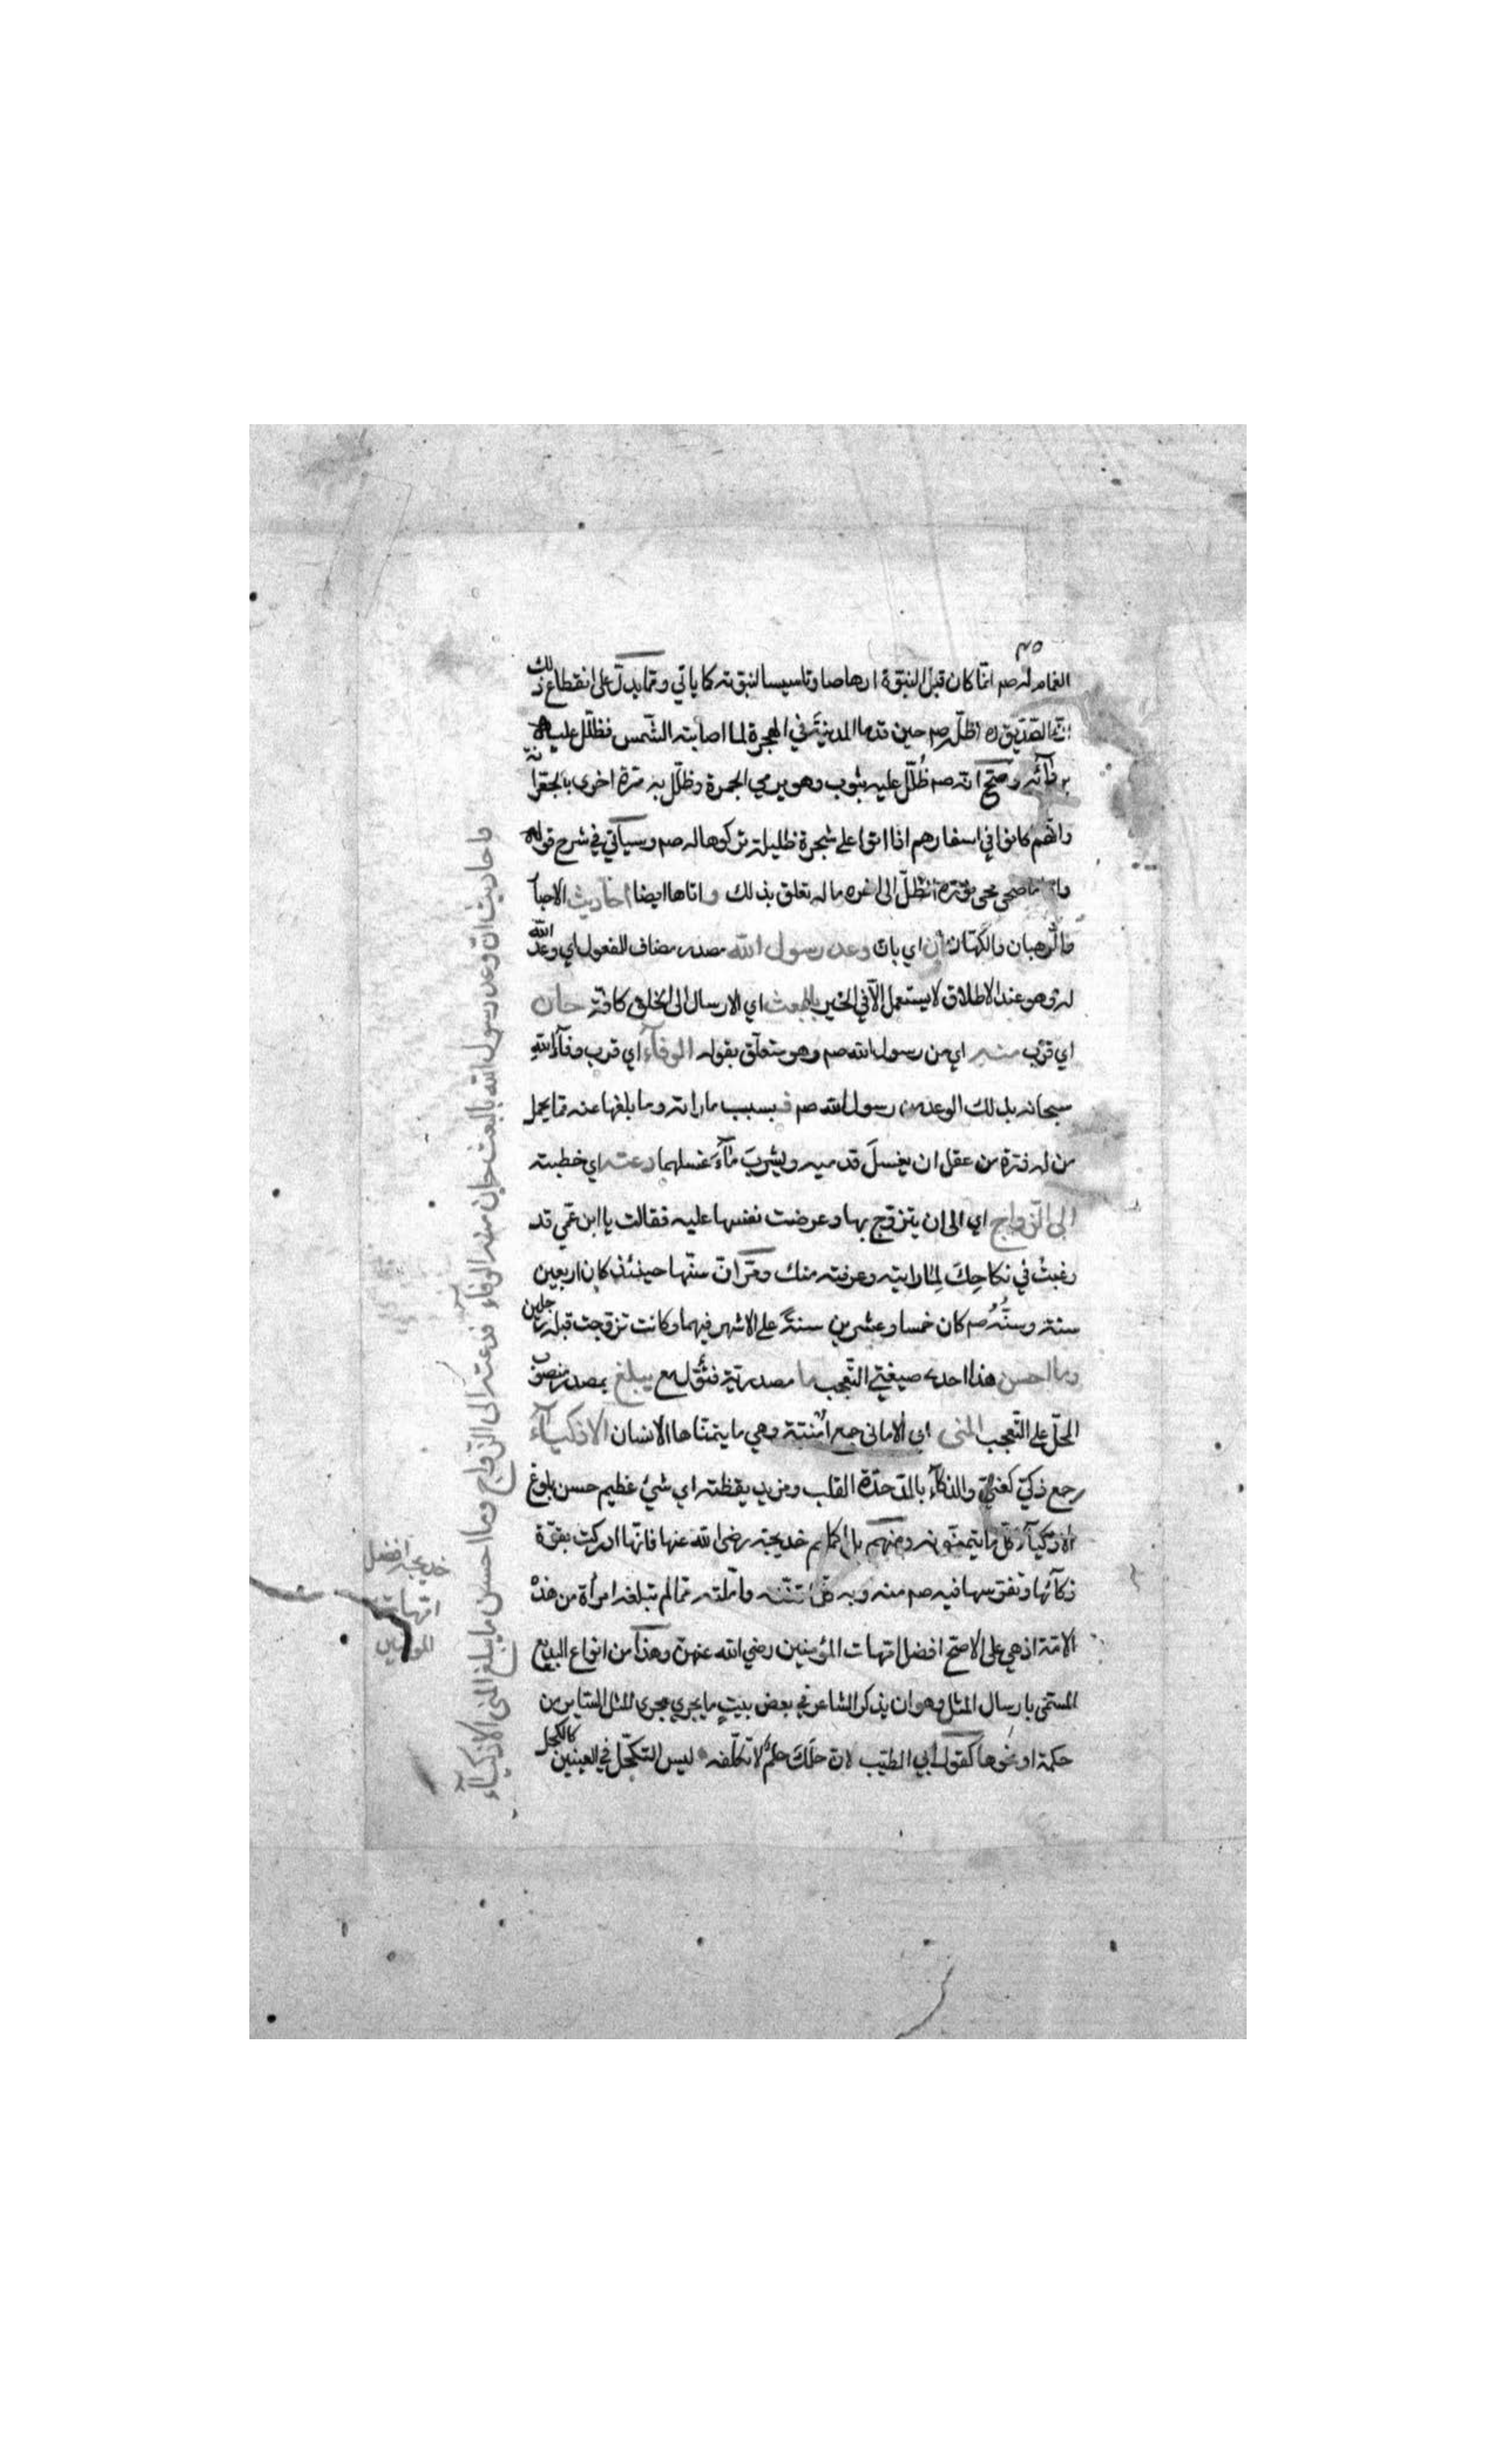 ٤٥
الغمام له صم انما كان قبل النبوة ارهاصا وتاسيسا لنبوته كما ياتي ومما يدل على انقطاع ذلك
ان الصديق ره اظل صم حين قدما المدينة في الهجرة لما اصابته الشمس فظلل عليه
بردائه وصح انه صم ظلل عليه بثوب وهو يرمي الجمرة وظلل به مرة اخرى بالجعرانة
وانهم كانوا في اسفارهم اذا اتوا على شجرة ظليلة تركوها له صم وسيأتي في شرح قوله
واذا ما ضحى محى نوره الظل الى اخره ما له تعلق بذلك واتاها ايضا احاديث الاحبار
والرهبان والكهان ان اي بان وعد رسول الله مصدر مضاف للمفعول اي وعد الله
له وهو عند الاطلاق لا يستعمل الا في الخير بالبعث اي الارسال الى الخلق كافة حان
اي قرب منه اي من رسول الله صم وهو متعلق بقوله الوفآء اي قرب وفآء الله
سبحانه بذلك الوعد من رسول الله صم فبسبب ما راته وما بلغها عنه مما يحمل
من له ذرة من عقل ان يغسل قدميه ويشرب مآء غسلهما دعته اي خطبته
الى الزواج اي الى ان يتزوج بها وعرضت نفسها عليه فقالت يا ابن عمي قد
رغبت في نكاحك لما رايته وعرفته منك ومر ان سنها حينئذ كان اربعين
سنة وسنه صم كان خمسا وعشرين سنة على الاشهر فيهما وكانت تزوجت قبله رجلين
وما احسن هذا احد صيغتي التعجب ما مصدرية فتؤل مع يبلغ بمصدر منصوب
المحل على التعجب المنى اي الاماني جمع امنية وهي ما يتمناها الانسان الاذكيآء
جمع ذكي كغني والذكآء بالمد حدة القلب ومزيد يقظته اي شئ عظيم حسن بلوغ
الاذكيآء كل ما يتمنونه ومنهم بل اكملهم خديجة رضى الله عنها فانها ادركت بقوة
ذكآئها وتفرسها فيه صم منه وبه كل ما تمنته واملته مما لم تبلغه امرأة من هذه
الامة اذ هي على الاصح افضل امهات المؤمنين رضي الله عنهن وهذا من انواع البديع
المسمى بارسال المثل وهو ان يذكر الشاعر في بعض بيت ما يجري مجرى المثل الساير من
حكمة او نحوها كقول ابي الطيب لان حلمك حلم لا تكلفه ليس التكحل في العينين كالكحل
واحاديث ان وعد رسول الله بالبعث حان منه الوفاء فدعته الى الزواج وما احسن ما يبلغ المنى الاذكيآء
خديجة افضل
امهات
المومنين